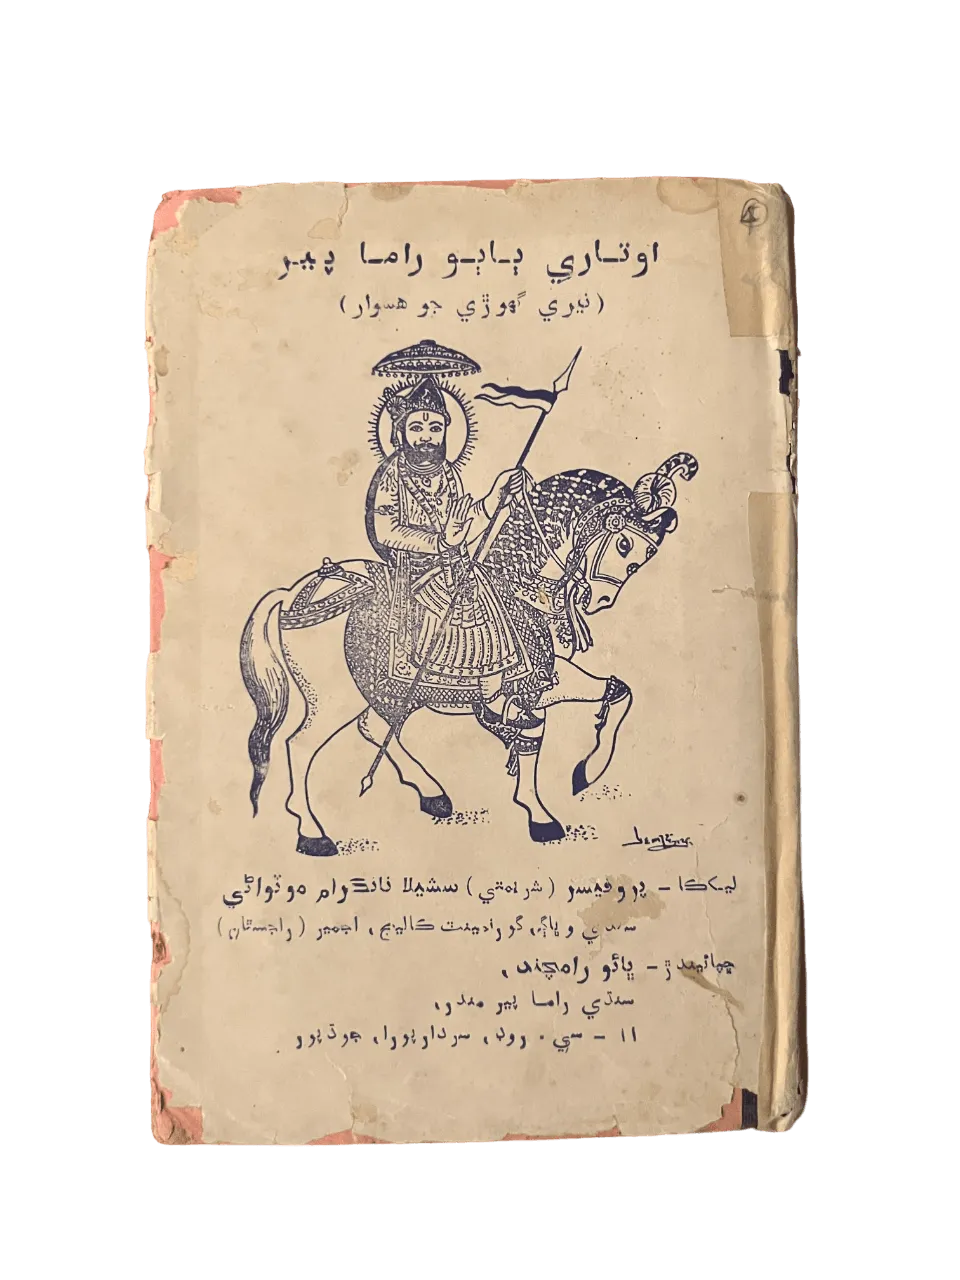 اوتاري ٻاٻو راما پير
(نيري گهوڙي جو هسوار)
ليککا - پروفيسر (شريمتي) سشيلا نانڪرام موٽواڻي
سنڌي وڀاڳ، گورنمينٽ ڪاليج، اجمير (راجسٿان)
ڇپائيندڙ - ڀائو رامچند،
سنڌي راما پير مندر،
١١ - سي. روڊ، سردارپورا، جوڌپور